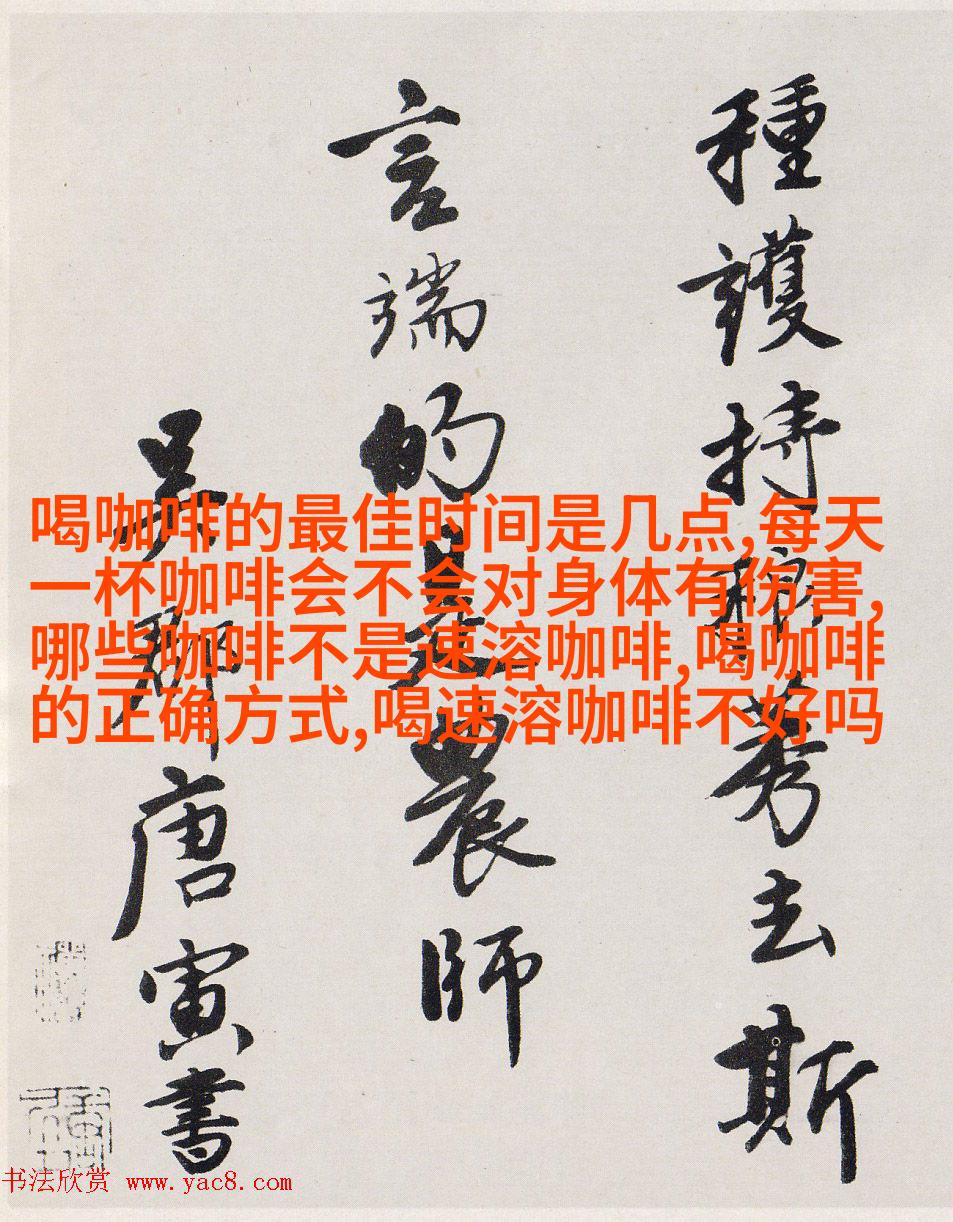 種護持稂莠去斯
言端的是農師
吳郡唐寅書
喝咖啡的最佳时间是几点,每天
一杯咖啡会不会对身体有伤害,
哪些咖啡不是速溶咖啡,喝咖啡
的正确方式,喝速溶咖啡不好吗
书法欣赏 www.yac8.com